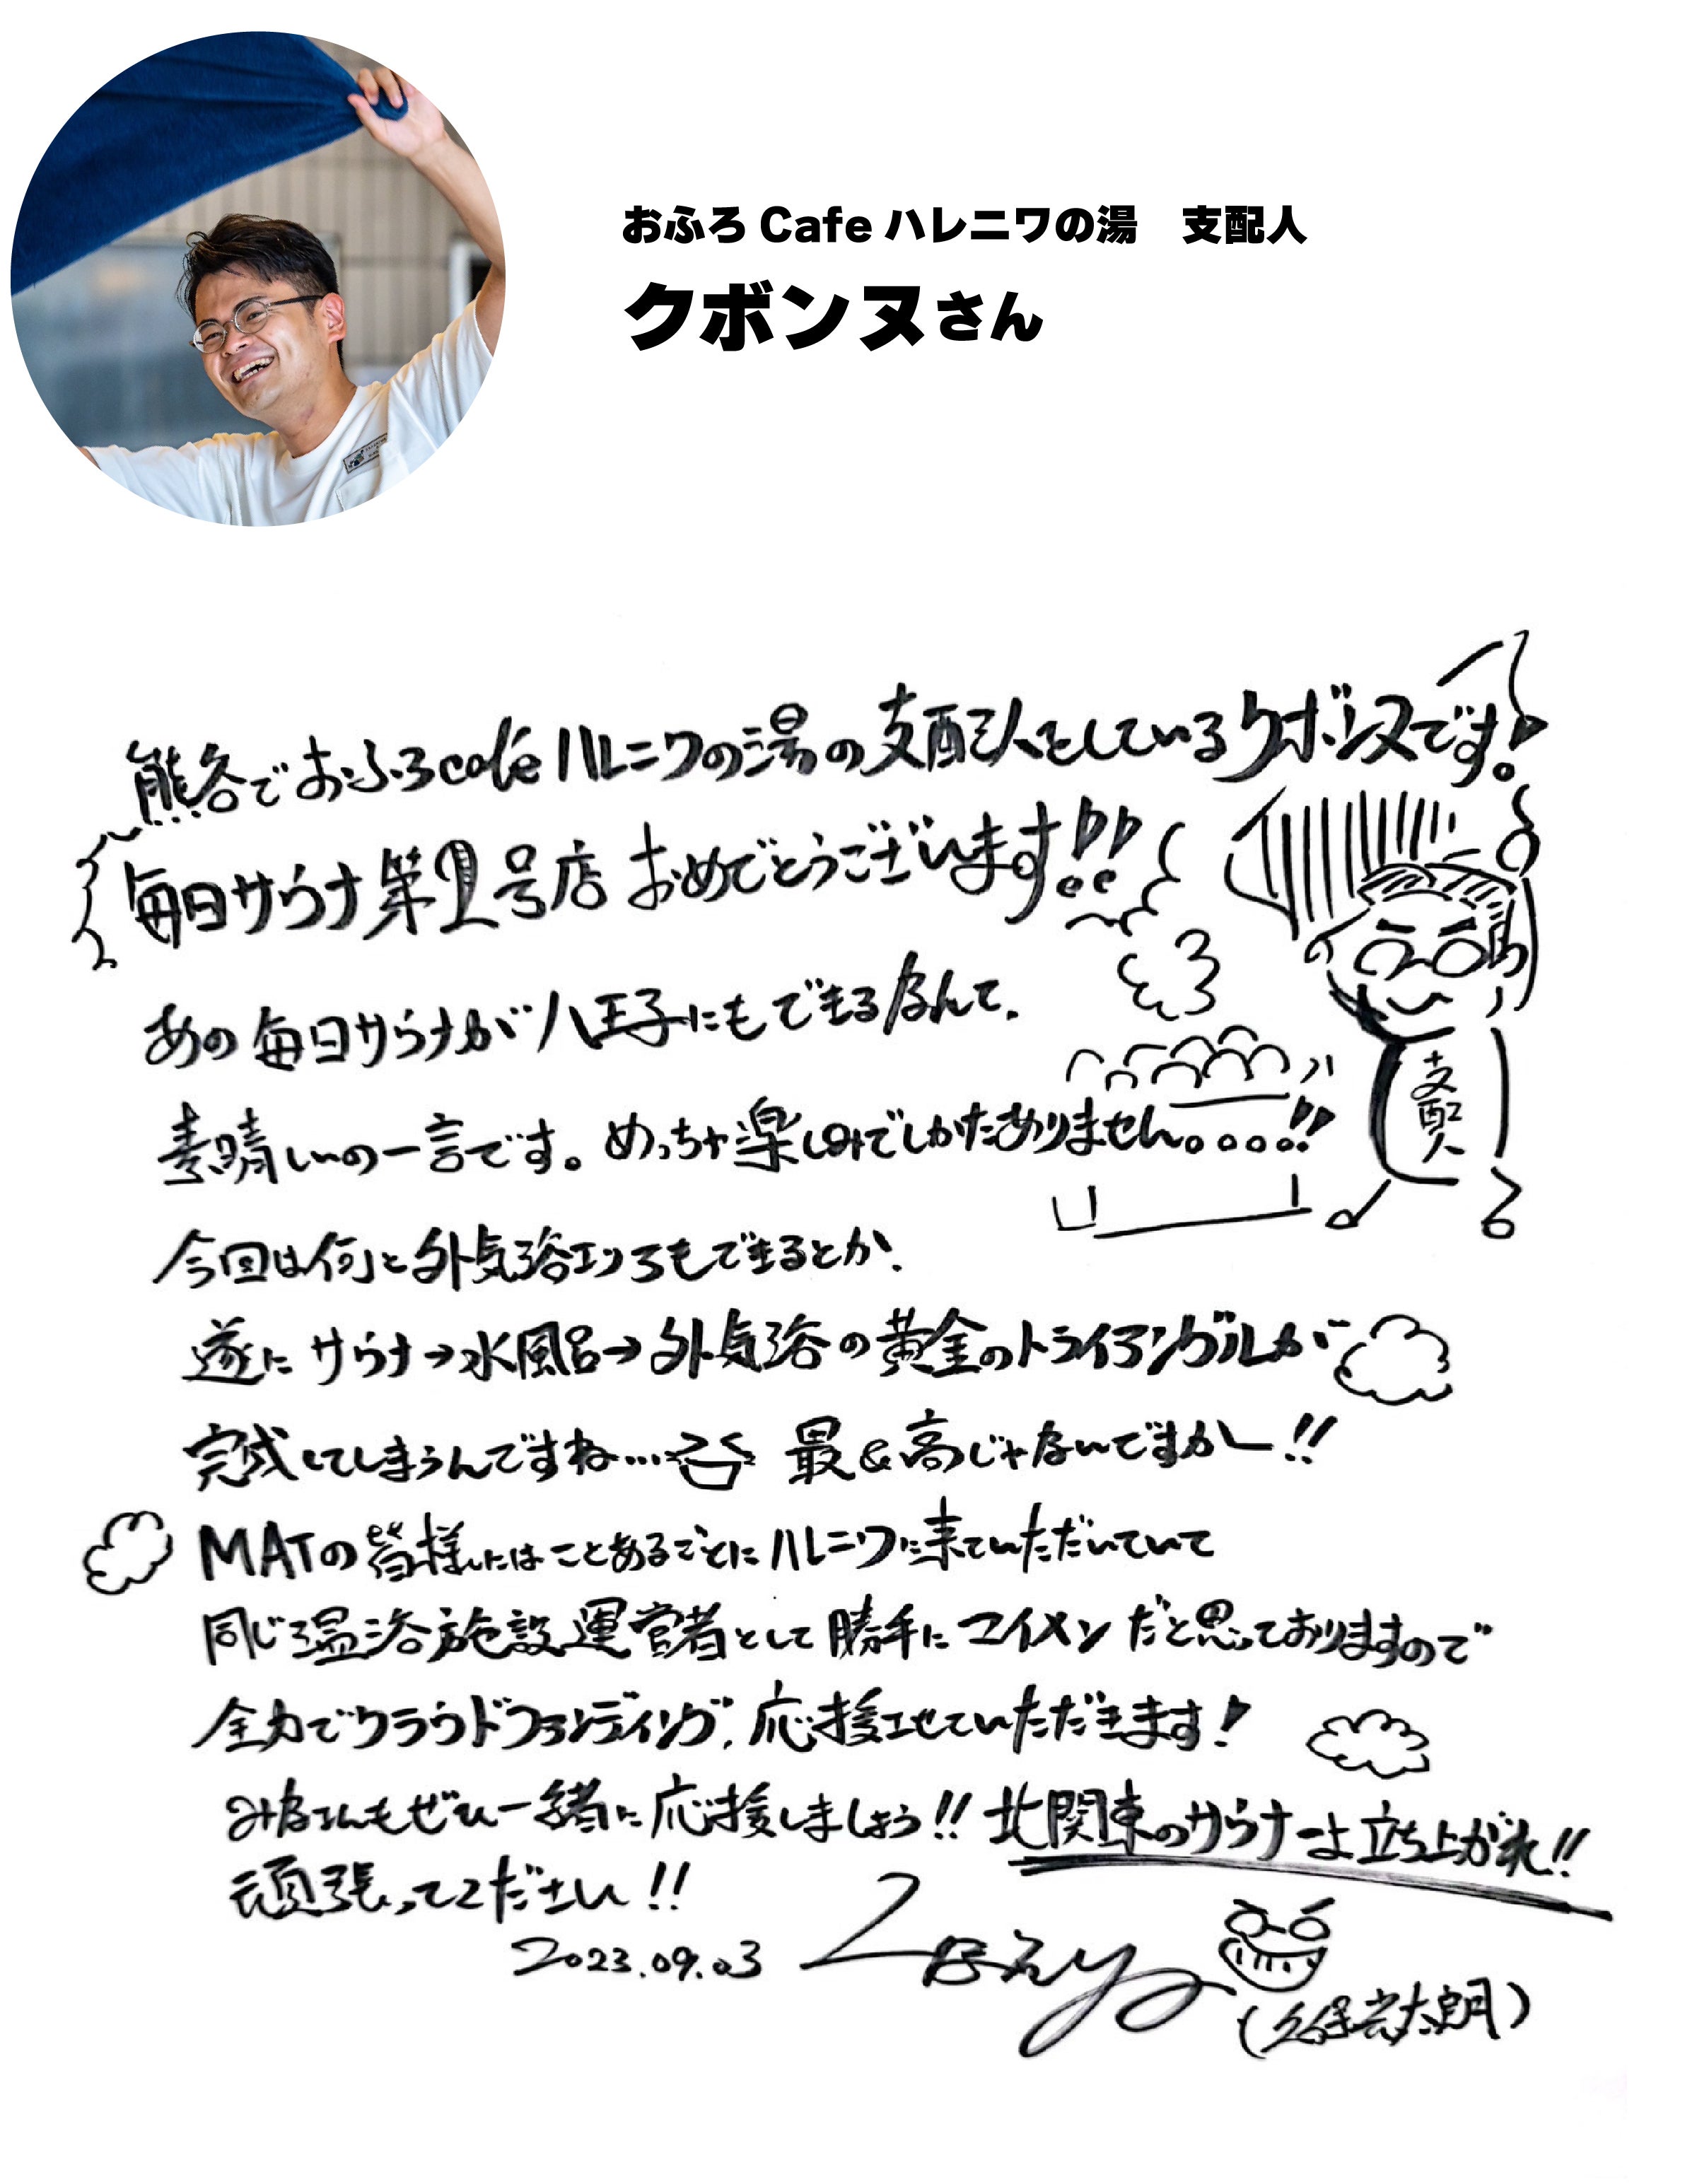 おふろCafeハレニワの湯　支配人
クボンヌさん
熊谷でおふろcaféハレニワの湯の支配人をしているクボンヌです!
毎日サウナ第2号店おめでとうございます!!
あの毎日サウナが八王子にもできるなんて、
素晴しいの一言です。めっちゃ楽しみでしかたありません。。。。!!
支配人
今回は何と外気浴エリアもできるとか、
遂にサウナ→水風呂→外気浴の黄金のトライアングルが
完成してしまうんですね… 最&高じゃないですかー!!
MATの皆様にはことあるごとにハレニワに来ていただいていて
同じ温浴施設運営者として勝手にマイメンだと思っておりますので
全力でクラウドファンディング、応援させていただきます!
みなさんもぜひ一緒に応援しましょう!! 北関東のサウナーよ立ち上がれ!!
頑張ってください!!
2023.09.03